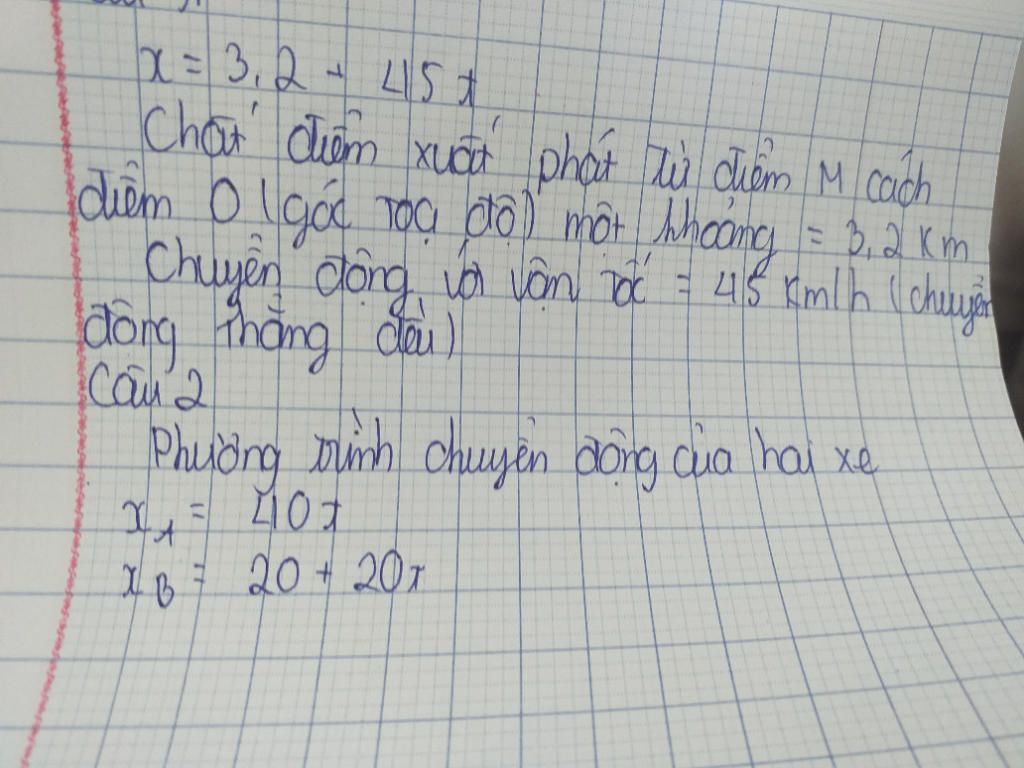 x = 3,2 + 45t
Chất điểm xuất phát từ điểm M cách
điểm O (gốc toạ độ) một khoảng = 3,2 km
Chuyển động với vận tốc = 45 km/h (chuyển
động thẳng đều)
Câu 2
Phương trình chuyển động của hai xe
x_A = 40t
x_B = 20 + 20t